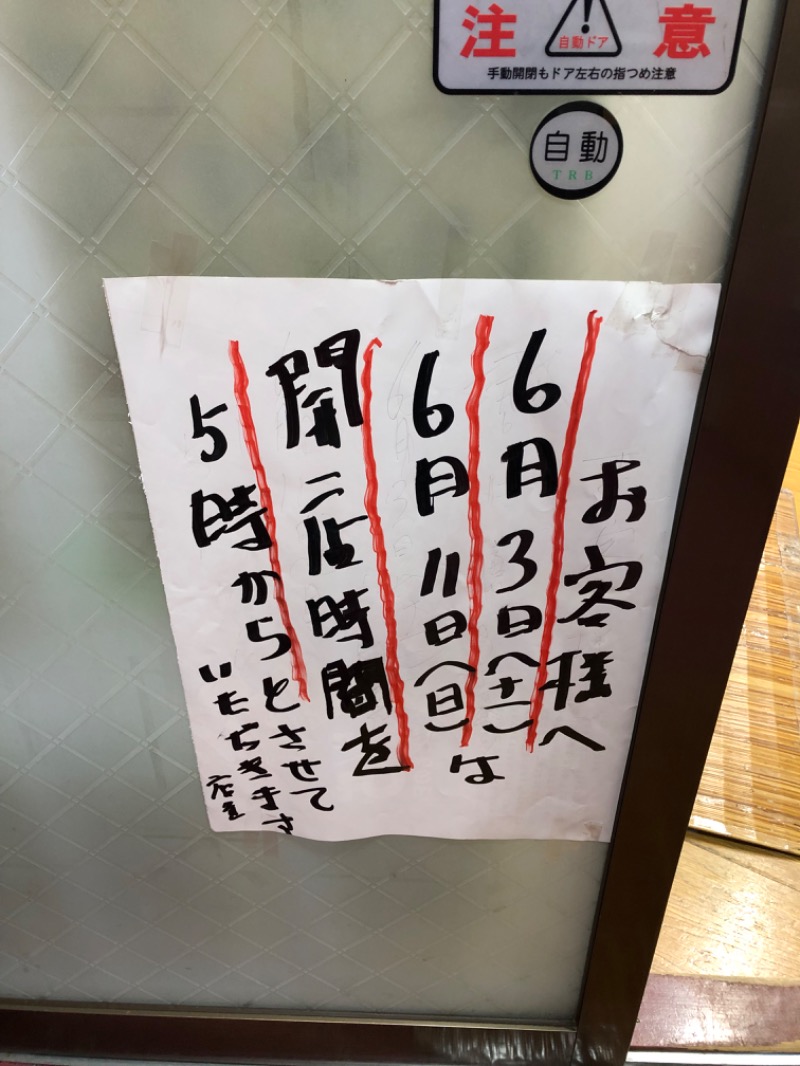 注 意
自動ドア
手動開閉もドア左右の指つめ注意
自動
TRB
お客様へ
6月3日(土)
6月11日(日)は
開店時間を
5時からとさせて
いただきます
店主